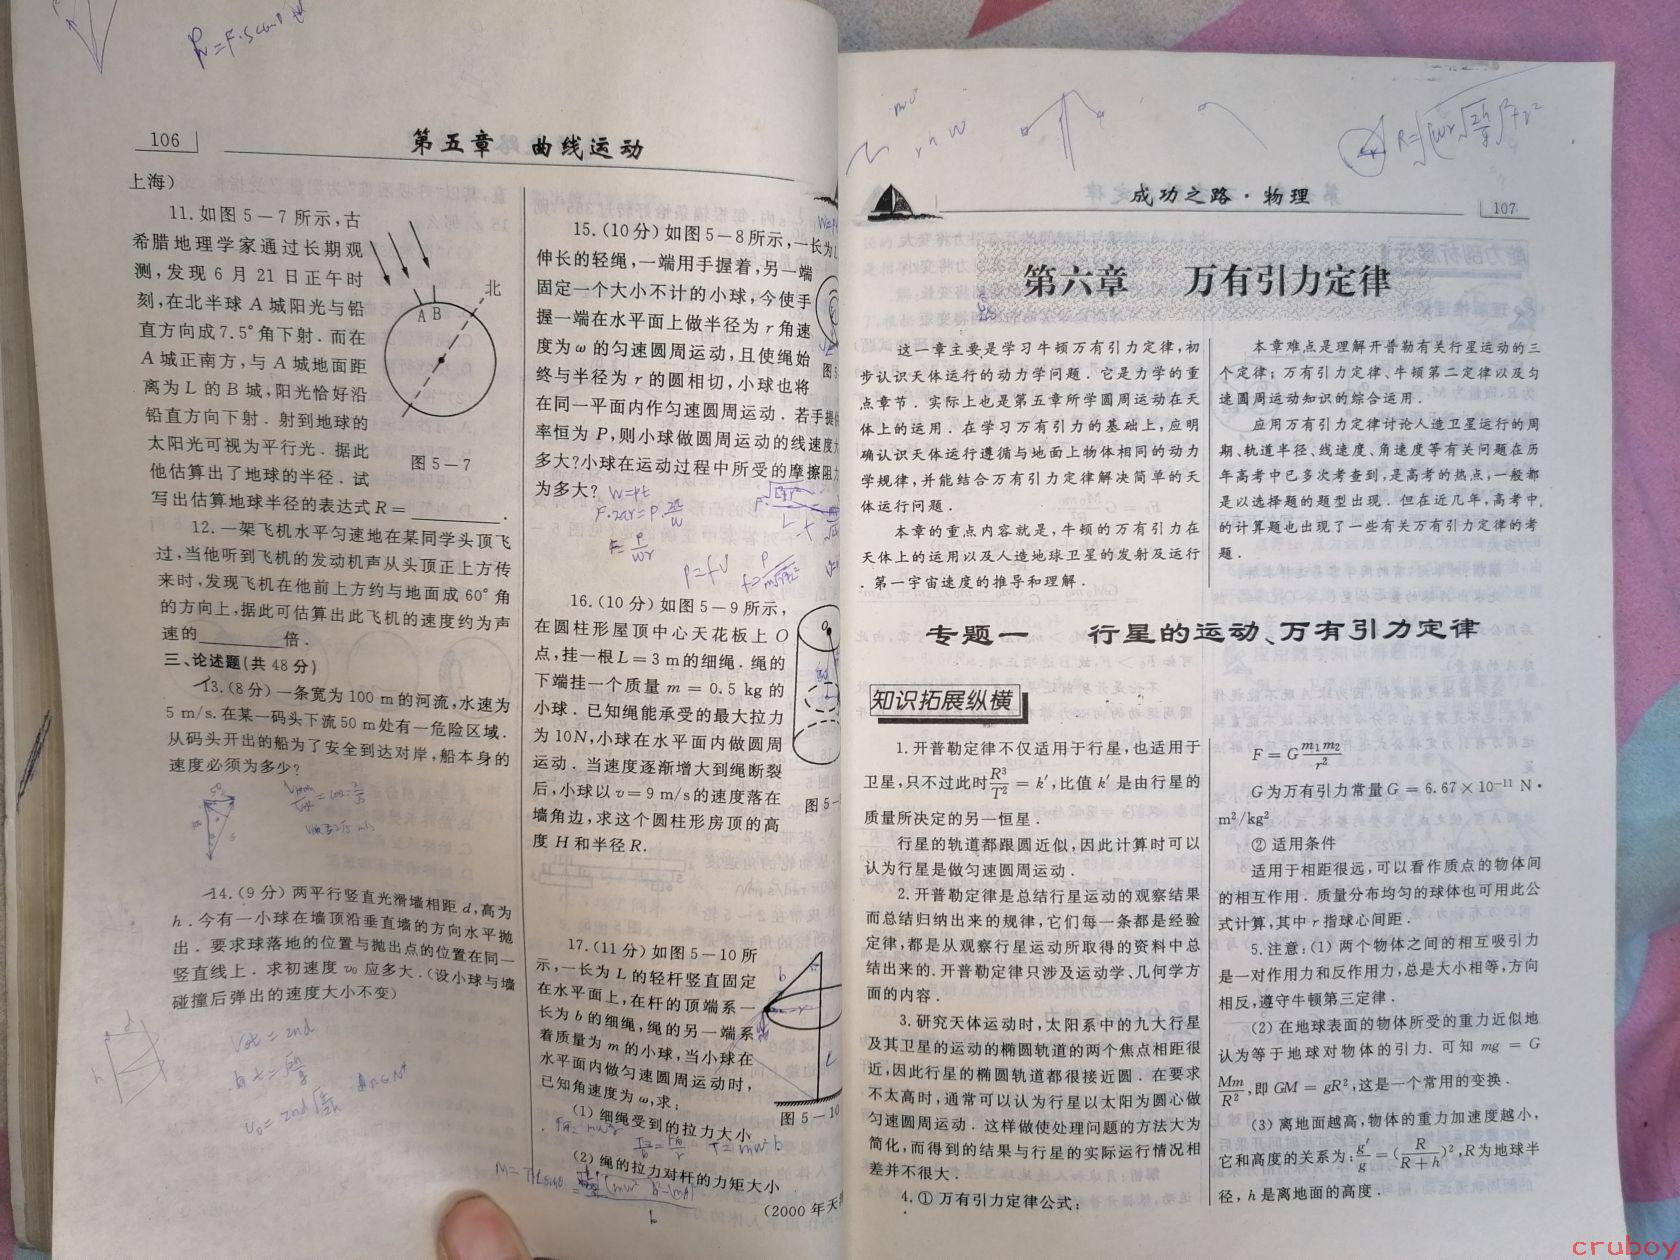 106
第五章　曲线运动
上海）
11.如图5－7所示,古
希腊地理学家通过长期观
测,发现6月21日正午时
刻,在北半球A城阳光与铅
直方向成7.5°角下射.而在
A城正南方,与A城地面距
离为L的B城,阳光恰好沿
铅直方向下射.射到地球的
太阳光可视为平行光.据此
他估算出了地球的半径.试
写出估算地球半径的表达式R=________.
北
A B
图5－7
12.一架飞机水平匀速地在某同学头顶飞
过,当他听到飞机的发动机声从头顶正上方传
来时,发现飞机在他前上方约与地面成60°角
的方向上,据此可估算出此飞机的速度约为声
速的________倍.
三、论述题(共48分)
13.(8分)一条宽为100 m的河流,水速为
5 m/s.在某一码头下流50 m处有一危险区域.
从码头开出的船为了安全到达对岸,船本身的
速度必须为多少?
14.(9分)两平行竖直光滑墙相距d,高为
h.今有一小球在墙顶沿垂直墙的方向水平抛
出.要求球落地的位置与抛出点的位置在同一
竖直线上.求初速度v₀应多大.(设小球与墙
碰撞后弹出的速度大小不变)
15.(10分)如图5－8所示,一长为L
伸长的轻绳,一端用手握着,另一端
固定一个大小不计的小球,今使手
握一端在水平面上做半径为r角速
度为ω的匀速圆周运动,且使绳始
终与半径为r的圆相切,小球也将
在同一平面内作匀速圆周运动.若手提
率恒为P,则小球做圆周运动的线速度
多大?小球在运动过程中所受的摩擦阻
为多大?
W=Pt
F·2πr=P·2π/W
F=P/Wr
P=fv
16.(10分)如图5－9所示,
在圆柱形屋顶中心天花板上O
点,挂一根L=3 m的细绳.绳的
下端挂一个质量m=0.5 kg的
小球.已知绳能承受的最大拉力
为10N,小球在水平面内做圆周
运动.当速度逐渐增大到绳断裂
后,小球以v=9 m/s的速度落在
墙角边,求这个圆柱形房顶的高
度H和半径R.
图5－
17.(11分)如图5－10所
示,一长为L的轻杆竖直固定
在水平面上,在杆的顶端系一
长为b的细绳,绳的另一端系
着质量为m的小球,当小球在
水平面内做匀速圆周运动时,
已知角速度为ω,求:
(1)细绳受到的拉力大小
(2)绳的拉力对杆的力矩大小
(2000年天
图5－10
成功之路·物理
107
第六章　万有引力定律
这一章主要是学习牛顿万有引力定律,初
步认识天体运行的动力学问题.它是力学的重
点章节.实际上也是第五章所学圆周运动在天
体上的运用.在学习万有引力的基础上,应明
确认识天体运行遵循与地面上物体相同的动力
学规律,并能结合万有引力定律解决简单的天
体运行问题.
本章的重点内容就是,牛顿的万有引力在
天体上的运用以及人造地球卫星的发射及运行
.第一宇宙速度的推导和理解.
本章难点是理解开普勒有关行星运动的三
个定律;万有引力定律、牛顿第二定律以及匀
速圆周运动知识的综合运用.
应用万有引力定律讨论人造卫星运行的周
期、轨道半径、线速度、角速度等有关问题在历
年高考中已多次考查到,是高考的热点,一般都
是以选择题的题型出现.但在近几年,高考中,
的计算题也出现了一些有关万有引力定律的考
题.
专题一　行星的运动、万有引力定律
知识拓展纵横
1.开普勒定律不仅适用于行星,也适用于
卫星,只不过此时R³/T²=k′,比值k′是由行星的
质量所决定的另一恒星.
行星的轨道都跟圆近似,因此计算时可以
认为行星是做匀速圆周运动.
2.开普勒定律是总结行星运动的观察结果
而总结归纳出来的规律,它们每一条都是经验
定律,都是从观察行星运动所取得的资料中总
结出来的.开普勒定律只涉及运动学、几何学方
面的内容.
3.研究天体运动时,太阳系中的九大行星
及其卫星的运动的椭圆轨道的两个焦点相距很
近,因此行星的椭圆轨道都很接近圆.在要求
不太高时,通常可以认为行星以太阳为圆心做
匀速圆周运动.这样做使处理问题的方法大为
简化,而得到的结果与行星的实际运行情况相
差并不很大.
4.①万有引力定律公式:
F=Gm₁m₂/r²
G为万有引力常量G=6.67×10⁻¹¹ N·
m²/kg²
②适用条件
适用于相距很远,可以看作质点的物体间
的相互作用.质量分布均匀的球体也可用此公
式计算,其中r指球心间距.
5.注意:(1)两个物体之间的相互吸引力
是一对作用力和反作用力,总是大小相等,方向
相反,遵守牛顿第三定律.
(2)在地球表面的物体所受的重力近似地
认为等于地球对物体的引力.可知mg=G
Mm/R²,即GM=gR²,这是一个常用的变换.
(3)离地面越高,物体的重力加速度越小,
它和高度的关系为:g′/g=(R/R+h)²,R为地球半
径,h是离地面的高度.
cruboy